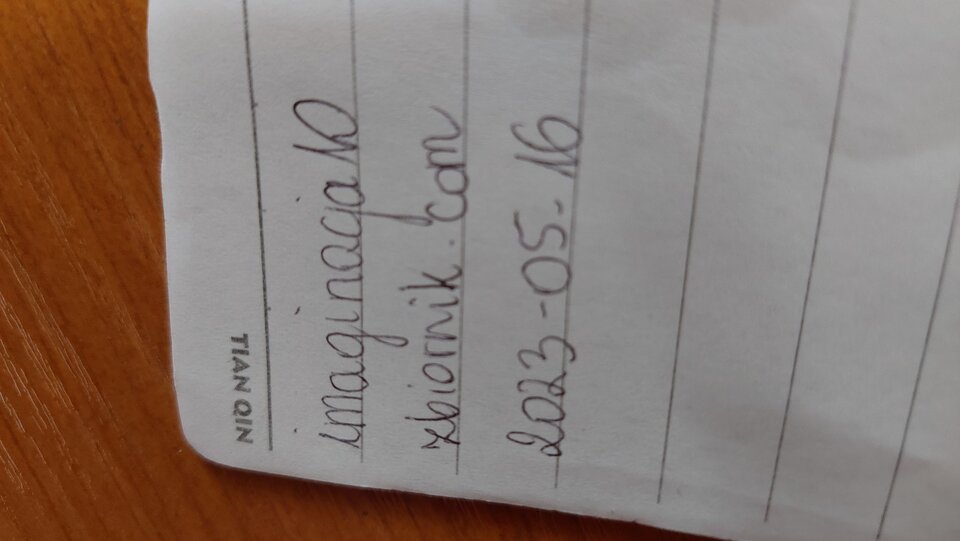 TIAN QIN
imaginacja10
zbiornik.com
2023-05-16